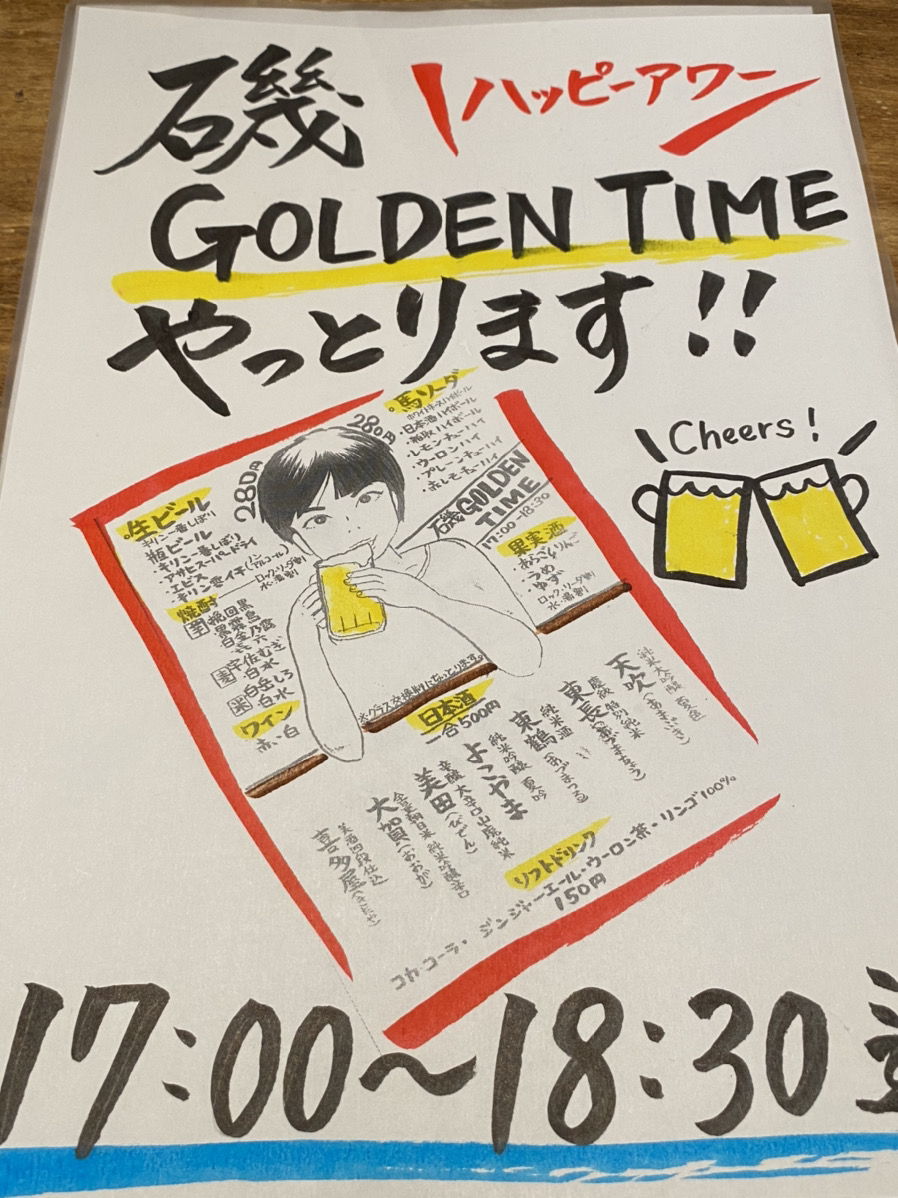 磯
ハッピーアワー
GOLDEN TIME
やっとります!!
Cheers!
280円
280円
。生ビール
キリン一番しぼり
瓶ビール
・キリン一番しぼり
・アサヒスーパードライ
・エビス
・キリン零イチ(ノンアルコール)
焼酎
ロック・ソーダ割
水・湯割
芋
・黒霧島
・白金乃露
麦
・宇佐むぎ
・白水
米
・白岳しろ
・白水
ワイン
赤・白
。馬ソーダ
ホワイトホースハイボール
・日本酒ハイボール
・レモンチューハイ
・ウーロンハイ
・プレーンチューハイ
・赤しそチューハイ
磯GOLDEN
TIME
17:00-18:30
果実酒
・あらごしりんご
・うめ
・ゆず
ロック・ソーダ割
水・湯割
※グラス交換制になっとります。
日本酒
一合500円
天吹(あまぶき)
純米大吟醸 夏色
東長(あづまちょう)
慶紋 特別純米
東鶴(あづまつる)
純米酒
よこやま
純米吟醸 夏吟
美田(びでん)
辛醸 大辛口山廃純米
大賀(おおが)
純米吟醸辛口
喜多屋(きたや)
美酒四段仕込
ソフトドリンク
150円
コカ・コーラ・ジンジャーエール・ウーロン茶・リンゴ100%
17:00〜18:30